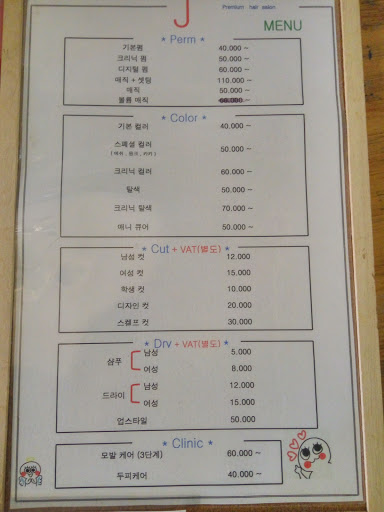 J
Premium hair salon
MENU
* Perm *
기본펌 40.000 ~
크리닉 펌 50.000 ~
디지털 펌 60.000 ~
매직 + 셋팅 110.000 ~
매직 50.000 ~
볼륨 매직
* Color *
기본 컬러 40.000 ~
스페셜 컬러 50.000 ~
크리닉 컬러 60.000 ~
탈색 50.000 ~
크리닉 탈색 70.000 ~
매니 큐어 50.000 ~
* Cut + VAT(별도) *
남성 컷 12.000
여성 컷 15.000
학생 컷 10.000
디자인 컷 20.000
스캘프 컷 30.000
* Dry + VAT(별도) *
샴푸 남성 5.000
여성 8.000
드라이 남성 12.000
여성 15.000
업스타일 50.000
* Clinic *
모발 케어 (3단계) 60.000 ~
두피케어 40.000 ~